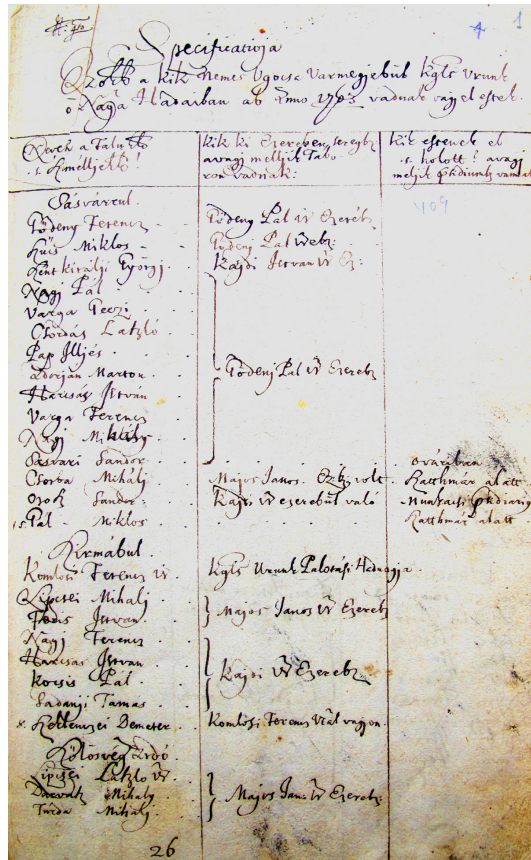 4
1
Specificatioja
Azokk a kik Nemes Ugocsa Varmegjebül kgls Urunk
ő Naga Hadaiban ab Anno 1703 vadnak vagj el estek.
Nevek a Falukk
s Helljekk!
kik ki Ezereben, seregbz
avagj melljik Tabo
ron vadnak:
Kik estenek el
s. holott? avagj
meljik
409
Sásvárrul.
Gödeny Ferencz
Gödeny Pál Ur Ezerébz
Kuis Miklos
Gödeny Pál
Szent királji Györgj
Kajdi Istvan Ur Ez:
Nagj Pál
Varga Geczi
Csordás László
Pap Illjés
Adorján Marton
Gödenj Pál Ur Ezerebz
Harcsás István
Varga Ferencz
Nagj Mihálj
Sásvari Sandor
Csorba Mihálj
Majos Janos. Ezbz volt
Katthmár alatt
Orosz Sandor
Kajdi Ur ezerebül való
Munkacsi
Pál Miklos
Katthmár alatt
Kirmábul.
Komlósi Ferencz Ur
kgls Urunk Palotási Hadnagja
Lipcsei Mihalj
Majos Janos Ur Ezerebz
Istvan
Nagj Ferencz
Harcsas Istvan
Kajdi Ur Ezerebz
Kocsis Pal
Sadanji Tamas
Demeter
Komlósi Ferencz Urál vagjon.
Lipcsei László Ur
Mihalj
Majos Jan. Ur Ezerebz
Turda Mihalj
26